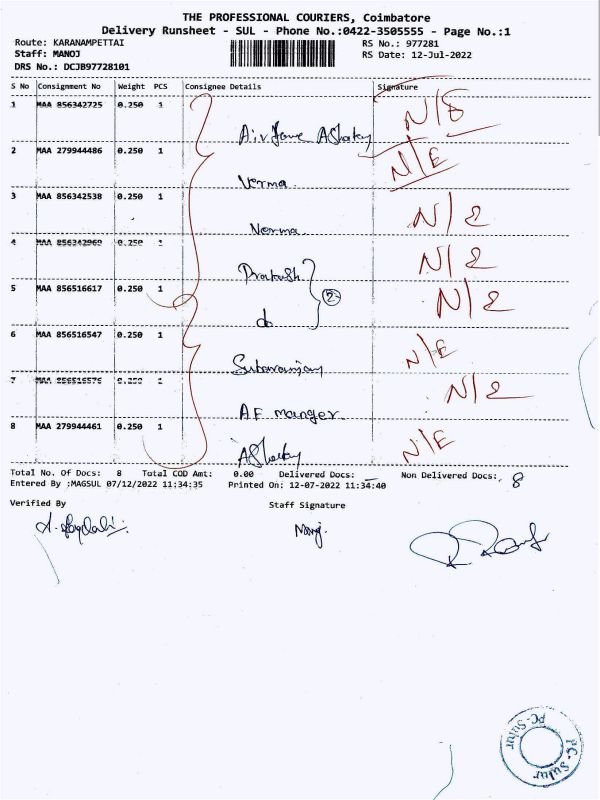 THE PROFESSIONAL COURIERS, Coimbatore
Delivery Runsheet - SUL - Phone No.:0422-3505555 - Page No.:1
Route: KARANAMPETTAI
RS No.: 977281
Staff: MANOJ
RS Date: 12-Jul-2022
DRS No.: DCJB97728101
S No Consignment No Weight PCS Consignee Details Signature
1 MAA 856342725 0.250 1 N/E
2 MAA 279944486 0.250 1 Verma N/E
3 MAA 856342538 0.250 1 Verma N/E
4 MAA 856342969 0.250 1 Prakash N/E
5 MAA 856516617 0.250 1 do 2 N/E
6 MAA 856516547 0.250 1 N/E
7 MAA 856516576 0.250 1 AF manger. N/E
8 MAA 279944461 0.250 1 N/E
Total No. Of Docs: 8 Total COD Amt: 0.00 Delivered Docs: — Non Delivered Docs: 8
Entered By :MAGSUL 07/12/2022 11:34:35 Printed On: 12-07-2022 11:34:40
Verified By Staff Signature
PC-Sulur
PC-Sulur